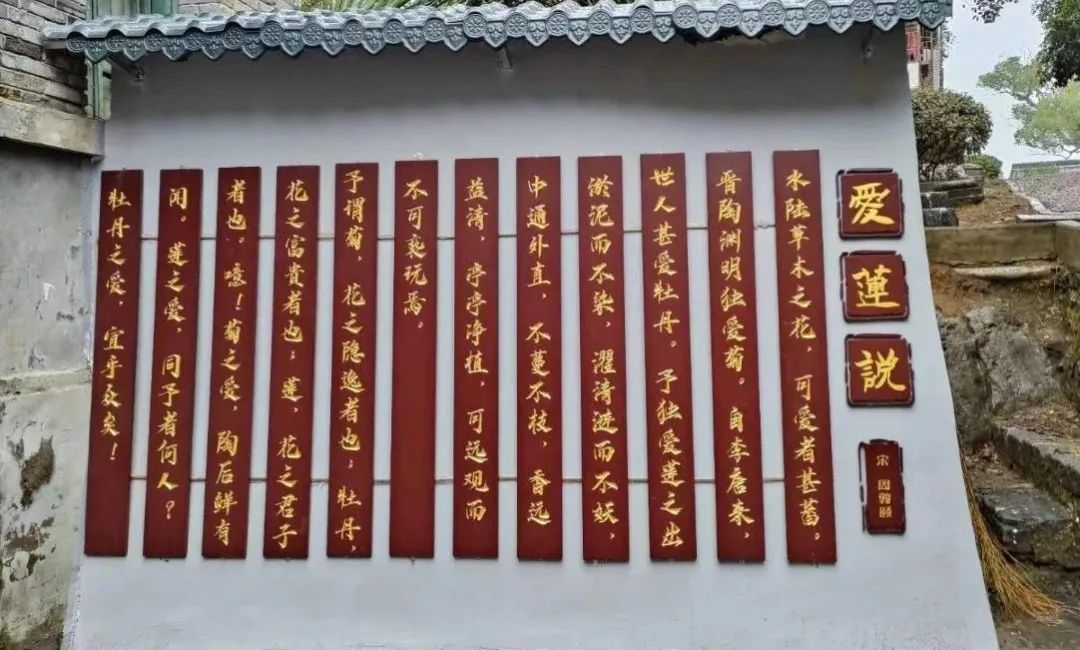 愛蓮説
宋 周敦頤
水陆草木之花，可爱者甚蕃。
晋陶渊明独爱菊。自李唐来，
世人甚爱牡丹。予独爱莲之出
淤泥而不染，濯清涟而不妖，
中通外直，不蔓不枝，香远
益清，亭亭净植，可远观而
不可亵玩焉。
予谓菊，花之隐逸者也；牡丹，
花之富貴者也；莲，花之君子
者也。噫！菊之爱，陶后鲜有
闻。莲之爱，同予者何人？
牡丹之爱，宜乎众矣！